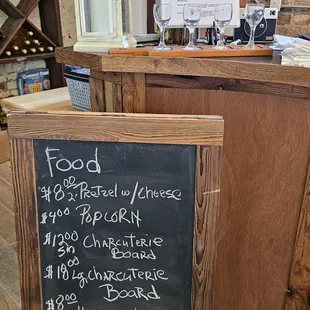 Food
$8.00 2. Pretzel w/ Cheese
$4.00 Popcorn
$12.00 Charcuterie
Sm Board
$18.00 Lg. Charcuterie
Board
$8.00